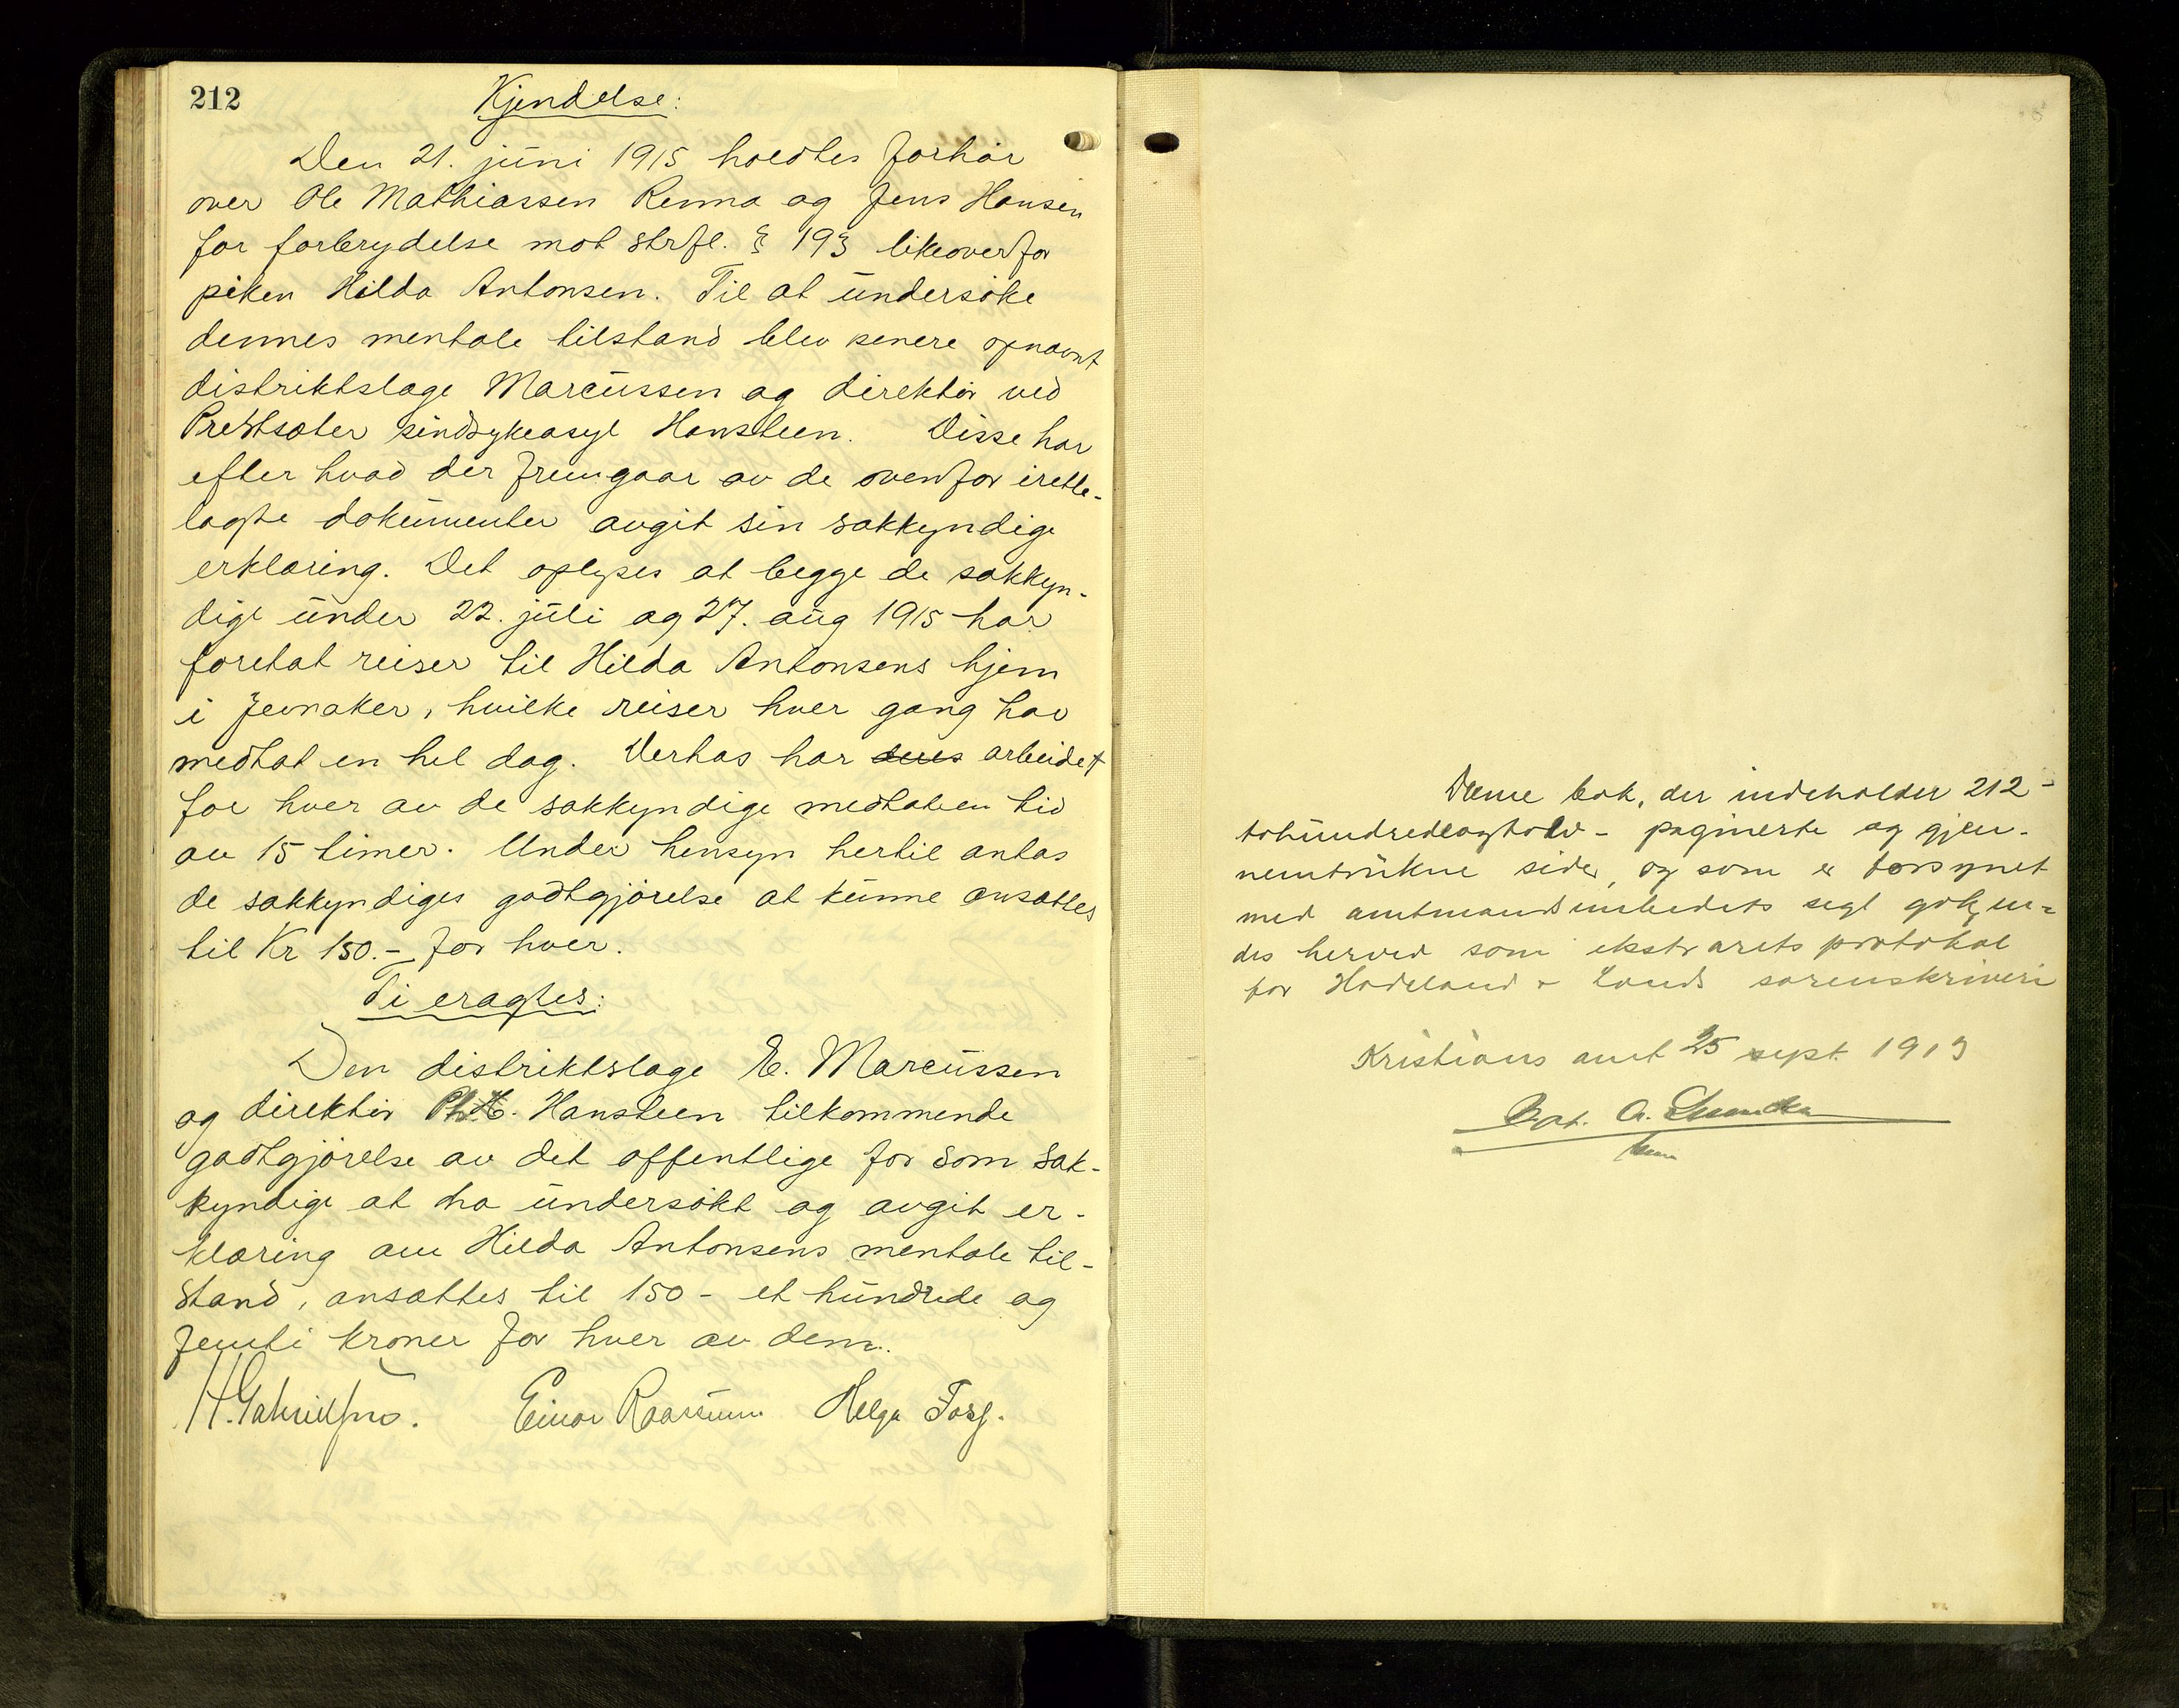 212
Kjendelse:
Den 21. juni 1915 holdtes forhør
over Ole Mathiassen Renna og Jens Hansen
for forbrydelse mot strfl. § 193 likeoverfor
piken Hilda Antonsen. Til at undersøke
dennes mentale tilstand blev senere opnævnt
distriktslæge Marcussen og direktør ved
Prestsæter sindsykeasyl Hansteen. Disse har
efter hvad der fremgaar av de ovenfor irette-
lagte dokumenter avgit sin sakkyndige
erklæring. Det oplyses at begge de sakkyn-
dige under 22. juli og 27. aug 1915 har
foretat reiser til Hilda Antonsens hjem
i Jevnaker, hvilke reiser hver gang har
medtat en hel dag. Derhos har arbeidet
for hver av de sakkyndige medtat en tid
av 15 timer. Under hensyn hertil antas
de sakkyndiges godtgjørelse at kunne ansættes
til Kr 150.- for hver.
Ti eragtes:
Den distriktslæge E. Marcussen
og direktør Hansteen tilkommende
godtgjørelse av det offentlige for som sak-
kyndige at ha undersøkt og avgit er-
klæring om Hilda Antonsens mentale til-
stand, ansættes til 150 - et hundrede og
femti kroner for hver av dem.
H. Gabrielsen. Einar Raasum Helge
Denne bok, der indeholder 212 -
tohundredeogtolv - paginerte og gjen-
nemtrukne sider, og som er forsynet
med amtmandsembedets segl godkjen-
des herved som ekstrarets protokol
for Hadeland & Lands sorenskriveri
Kristians amt 25 sept. 1913